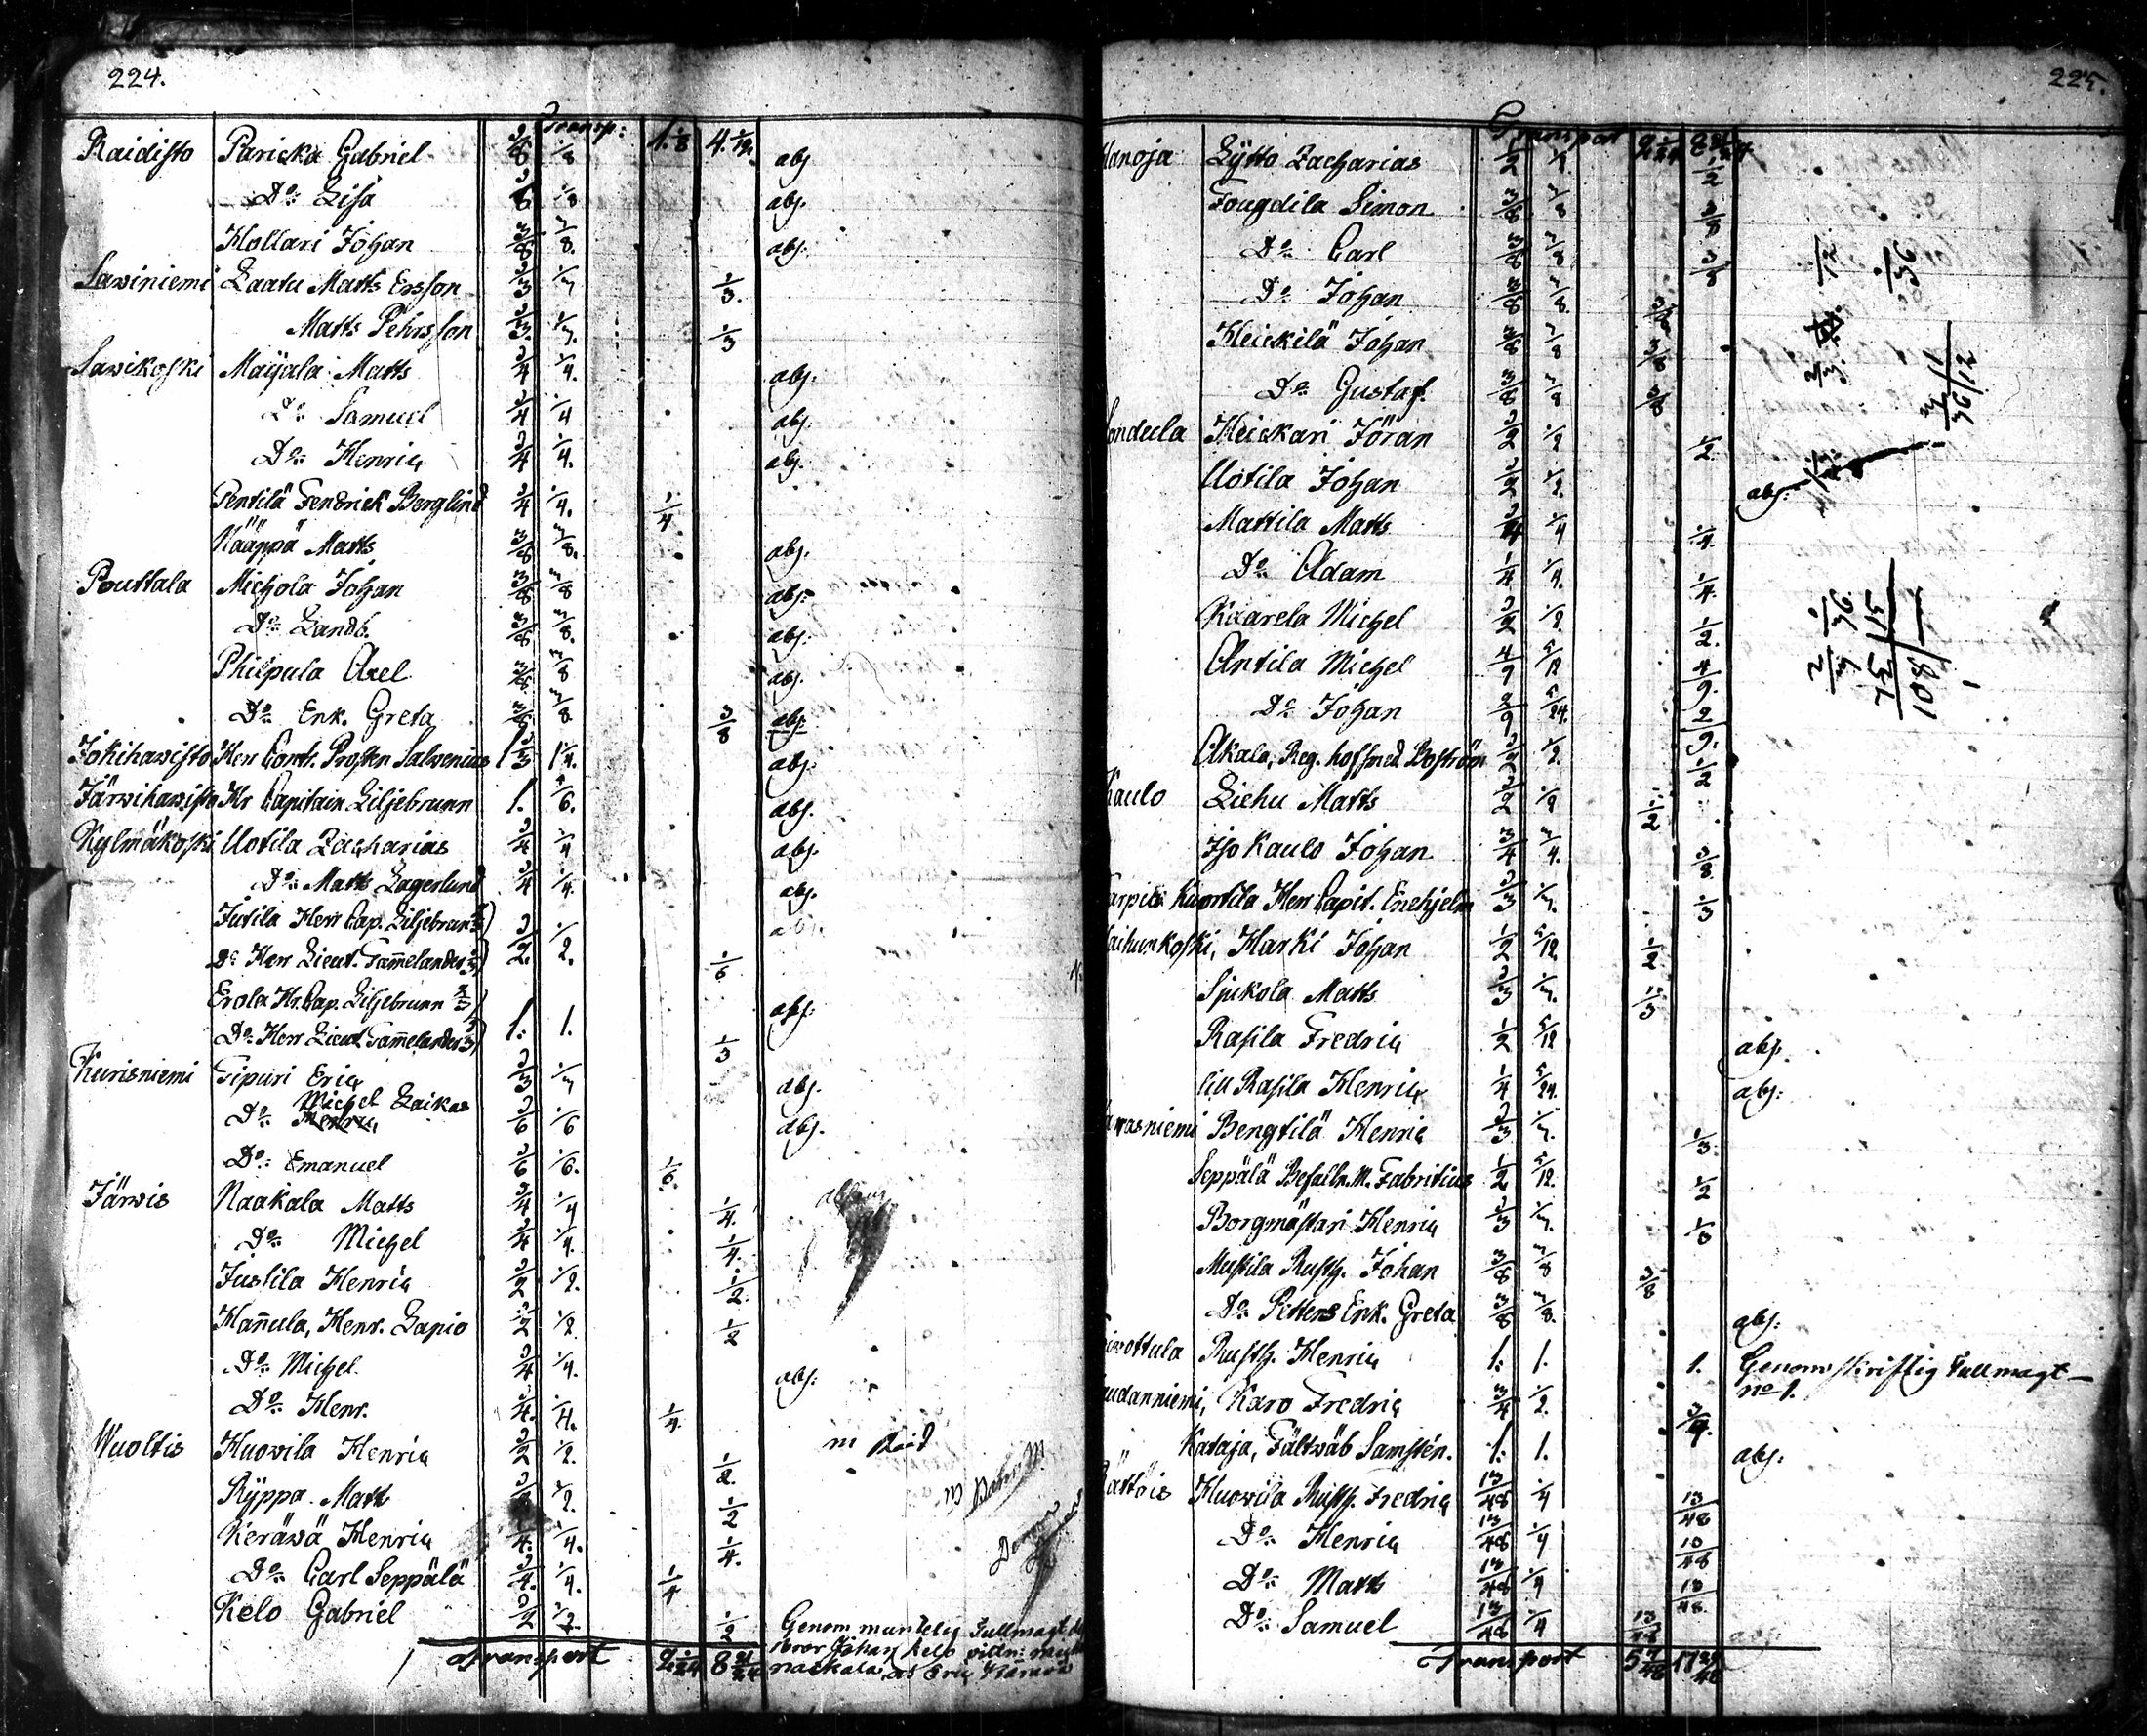 224.
Transp: 1.1/8 4.1/12.
Raidisto Paricka Gabriel 3/8 1/8 abs
Do: Lisa 3/8 1/8 abs.
Hollari Johan 3/8 3/8. abs.
Sawiniemi Laatu Matts Ersson 1/3 1/3 1/3.
Matts Pehrsson 1/3. 1/3. 1/3
Sawikoski Maijala Matts 1/4 1/4. abs.
Do: Samuel 1/4 1/4 abs.
Do: Henric 1/4 1/4. abs.
Pentilä Fendrick Berglind 1/4 1/4. 1/4
Kääppä Matts 3/8 3/8. abs.
Pouttala Michola Johan 3/8 3/8 abs:
Do: Landb. 3/8 3/8. abs:
Philpula Axel 3/8 3/8 abs.
Do: Enk. Greta 3/8 3/8 3/8 abs:
Jokihawisto Herr Cont. Prosten Salwenius 1 1/3 1 1/4. abs:
Järwihawisto Hr Capitain Liljebrunn 1. 5/6. abs.
Kylmäkoski Uotila Zacharias 1/4 1/4 abs.
Do: Matts Lagerlund 1/4 1/4. abs.
Jutila Herr Cap. Liljebrun 2/3) 1/2. 1/2. abs.
Do Herr Lieut. Tam̄elander 1/3) 1/6
Erola Hr. Cap. Liljebrunn 2/3) 1: 1. abs:
Do: Herr Lieut Tam̄elander 1/3) 1/3
Kurisniemi Tipuri Eric 1/3 1/3 abs.
Michel Laikas
Do: Henric 1/6 1/6 abs.
Do: Emanuel 1/6 1/6. 1/6.
Järwis Naakala Matts 1/4 1/4 1/4.
Do: Michel 1/4 1/4. 1/4.
Juslila Henric 1/2 1/2. 1/2.
Han̄ula, Henr. Lapio 1/2 1/2 1/2
Do: Michel. 1/4 1/4. abs:
Do: Henr. 1/4. 1/4. 1/4
Wuoltis Huowila Henric 1/2 1/2. 1/2.
Ryppa Matts 1/2. 1/2
Keräwä Henric 1/4. 1/4. 1/4.
Do: Carl Seppälä 1/4. 1/4. 1/4
Kelo Gabriel 1/2 1/2. 1/2 Genom muntelig Fullmagt
bror Johan kelo
Transport 2 1/24 8 naakala
225.
Transport 2 1/24 8
anoja Lyttö Zacharias 1/2 1/2. 1/2
Fougdila Simon 3/8 3/8 3/8
Do: Carl 3/8 3/8 3/8
Do: Johan 3/8 3/8. 3/8
Heickilä Johan 3/8 3/8 3/8
Do: Gustaf. 3/8 3/8 3/8
ondula Heickari Jöran 1/2 1/2 1/2.
Uotila Johan 1/2 1/2. abs:
Mattila Matts 1/4 1/4 1/4.
Do: Adam 1/4 1/4. 1/4.
Kaarela Michel 1/2 1/2. 1/2.
Antila Michel 4/9 5/12 4/9.
Do: Johan 2/9 5/24. 2/9.
Akala, Reg. hofsmed Boström 1/2 1/2. 1/2
Kaulo Liehu Matts 1/2 1/2 1/2
Iso Kaulo Johan 3/4 3/4. 3/8
arpila Kuortila Herr Capit. Enehjelm 1/3 1/3. 1/3
aihunkoski, Harki Johan 1/2 5/12. 1/2.
Sjukola Matts 1/3 1/3. 1/3
Rasila Fredric 1/2 5/12 abs.
lill Rasila Henric 1/4 5/24. abs:
wasniemi Bengtilä Henric 1/3 1/3. 1/3.
Seppälä Befalln. M. Fabritius 1/2 5/12. 1/2
Borgmästari Henric 1/3 1/3. 1/3
Mustila Rusth. Johan 3/8 3/8 3/8
Do: Petters Enk. Greta 3/8 3/8. abs:
iwottula Rusth. Henric 1. 1. 1. Genom skriftlig Fullmagt
no 1.
audanniemi, Karo Fredric 3/4 1/2. 3/4.
Kataja, Fältwäb Samstén. 1. 1. abs.
ättöis Huowila Rusth. Fredric 13/48 1/4 13/48
Do: Henric 13/48 1/4 13/48
Do: Matts 13/48 1/4 13/48
Do: Samuel 13/48 1/4 13/48 abs:
Transport